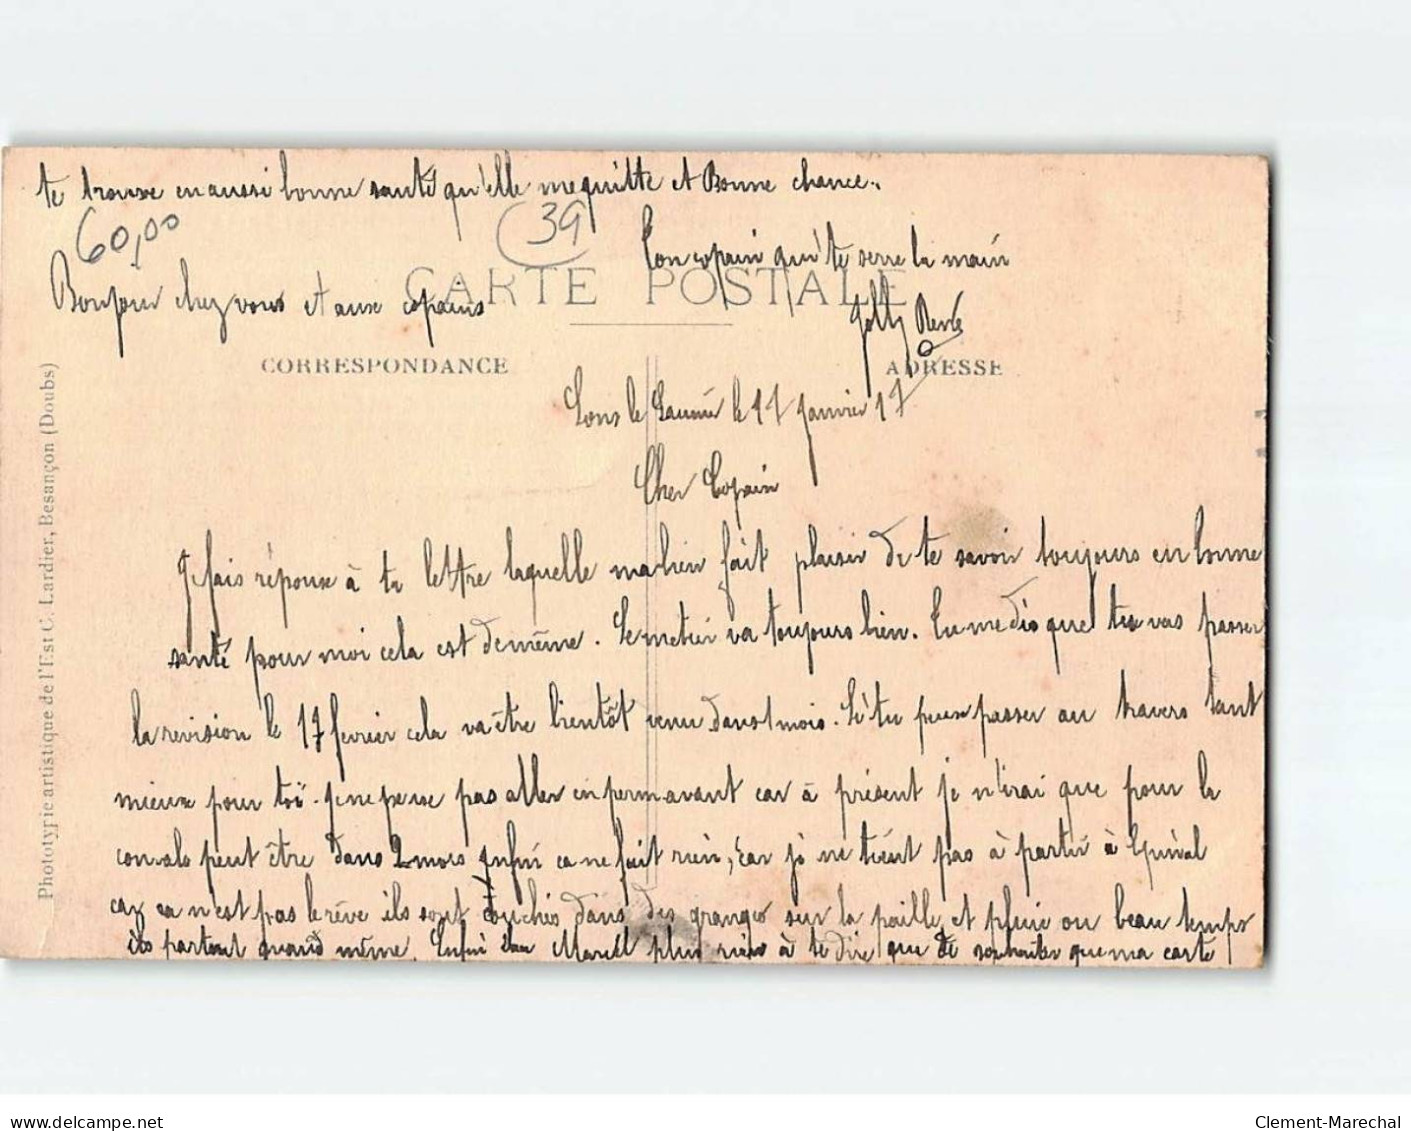 te trouve en aussi bonne santé qu'elle me quitte et Bonne chance.
60,00
39
Ton copain qui te serre la main
CARTE POSTALE
Bonjour chez vous et aux copains
Jolly René
CORRESPONDANCE
ADRESSE
Lons le Saunier le 17 janvier 17
Cher Copain
Je fais réponse à ta lettre laquelle ma bien fait plaisir de te savoir toujours en bonne
santé pour moi cela est de même. Le metier va toujours bien. Tu me dis que tu vas passer
la revision le 17 fevrier cela va être bientôt venu dans 1 mois. Si tu peux passer au travers tant
mieux pour toi. Je ne pense pas aller en perm avant car à présent je n'irai que pour la
convalo peut être dans 2 mois enfin ca ne fait rien, car je ne tient pas à partir à Epinal
car ca n'est pas le rêve ils sont couchés dans des granges sur la paille et pluie ou beau temps
ils partent quand même. Enfin Marcel plus rien à te dire que de souhaiter que ma carte
Phototypie artistique de l'Est C. Lardier, Besançon (Doubs)
delcampe.net
Clement-Marechal